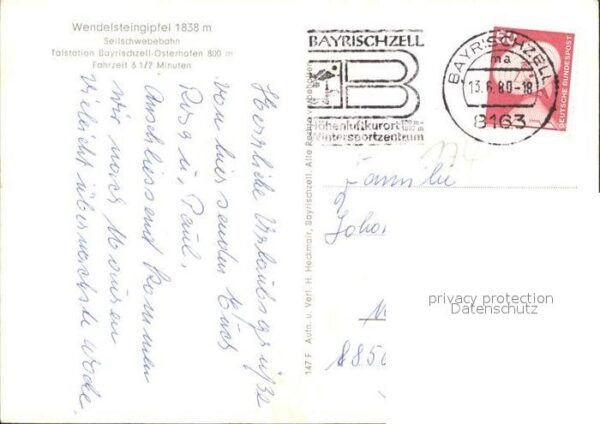 Wendelsteingipfel 1838 m
Seilschwebebahn
Talstation Bayrischzell-Osterhofen 800 m
Fahrzeit 6 1/2 Minuten
Herzliche Urlaubsgrüße
von hier senden Euch
Rosa u. Paul.
Anschliessend kommen
wir nach
vieleicht übernächste Woche.
147 F Aufn. u. Verl. H. Heckmair, Bayrischzell. Alle Rechte vorbehalten
BAYRISCHZELL
B
Höhenluftkurort
Wintersportzentrum
BAYRISCHZELL
ma
13.6.80-18
8163
DEUTSCHE BUNDESPOST
174
Familie
Joha
885
privacy protection
Datenschutz